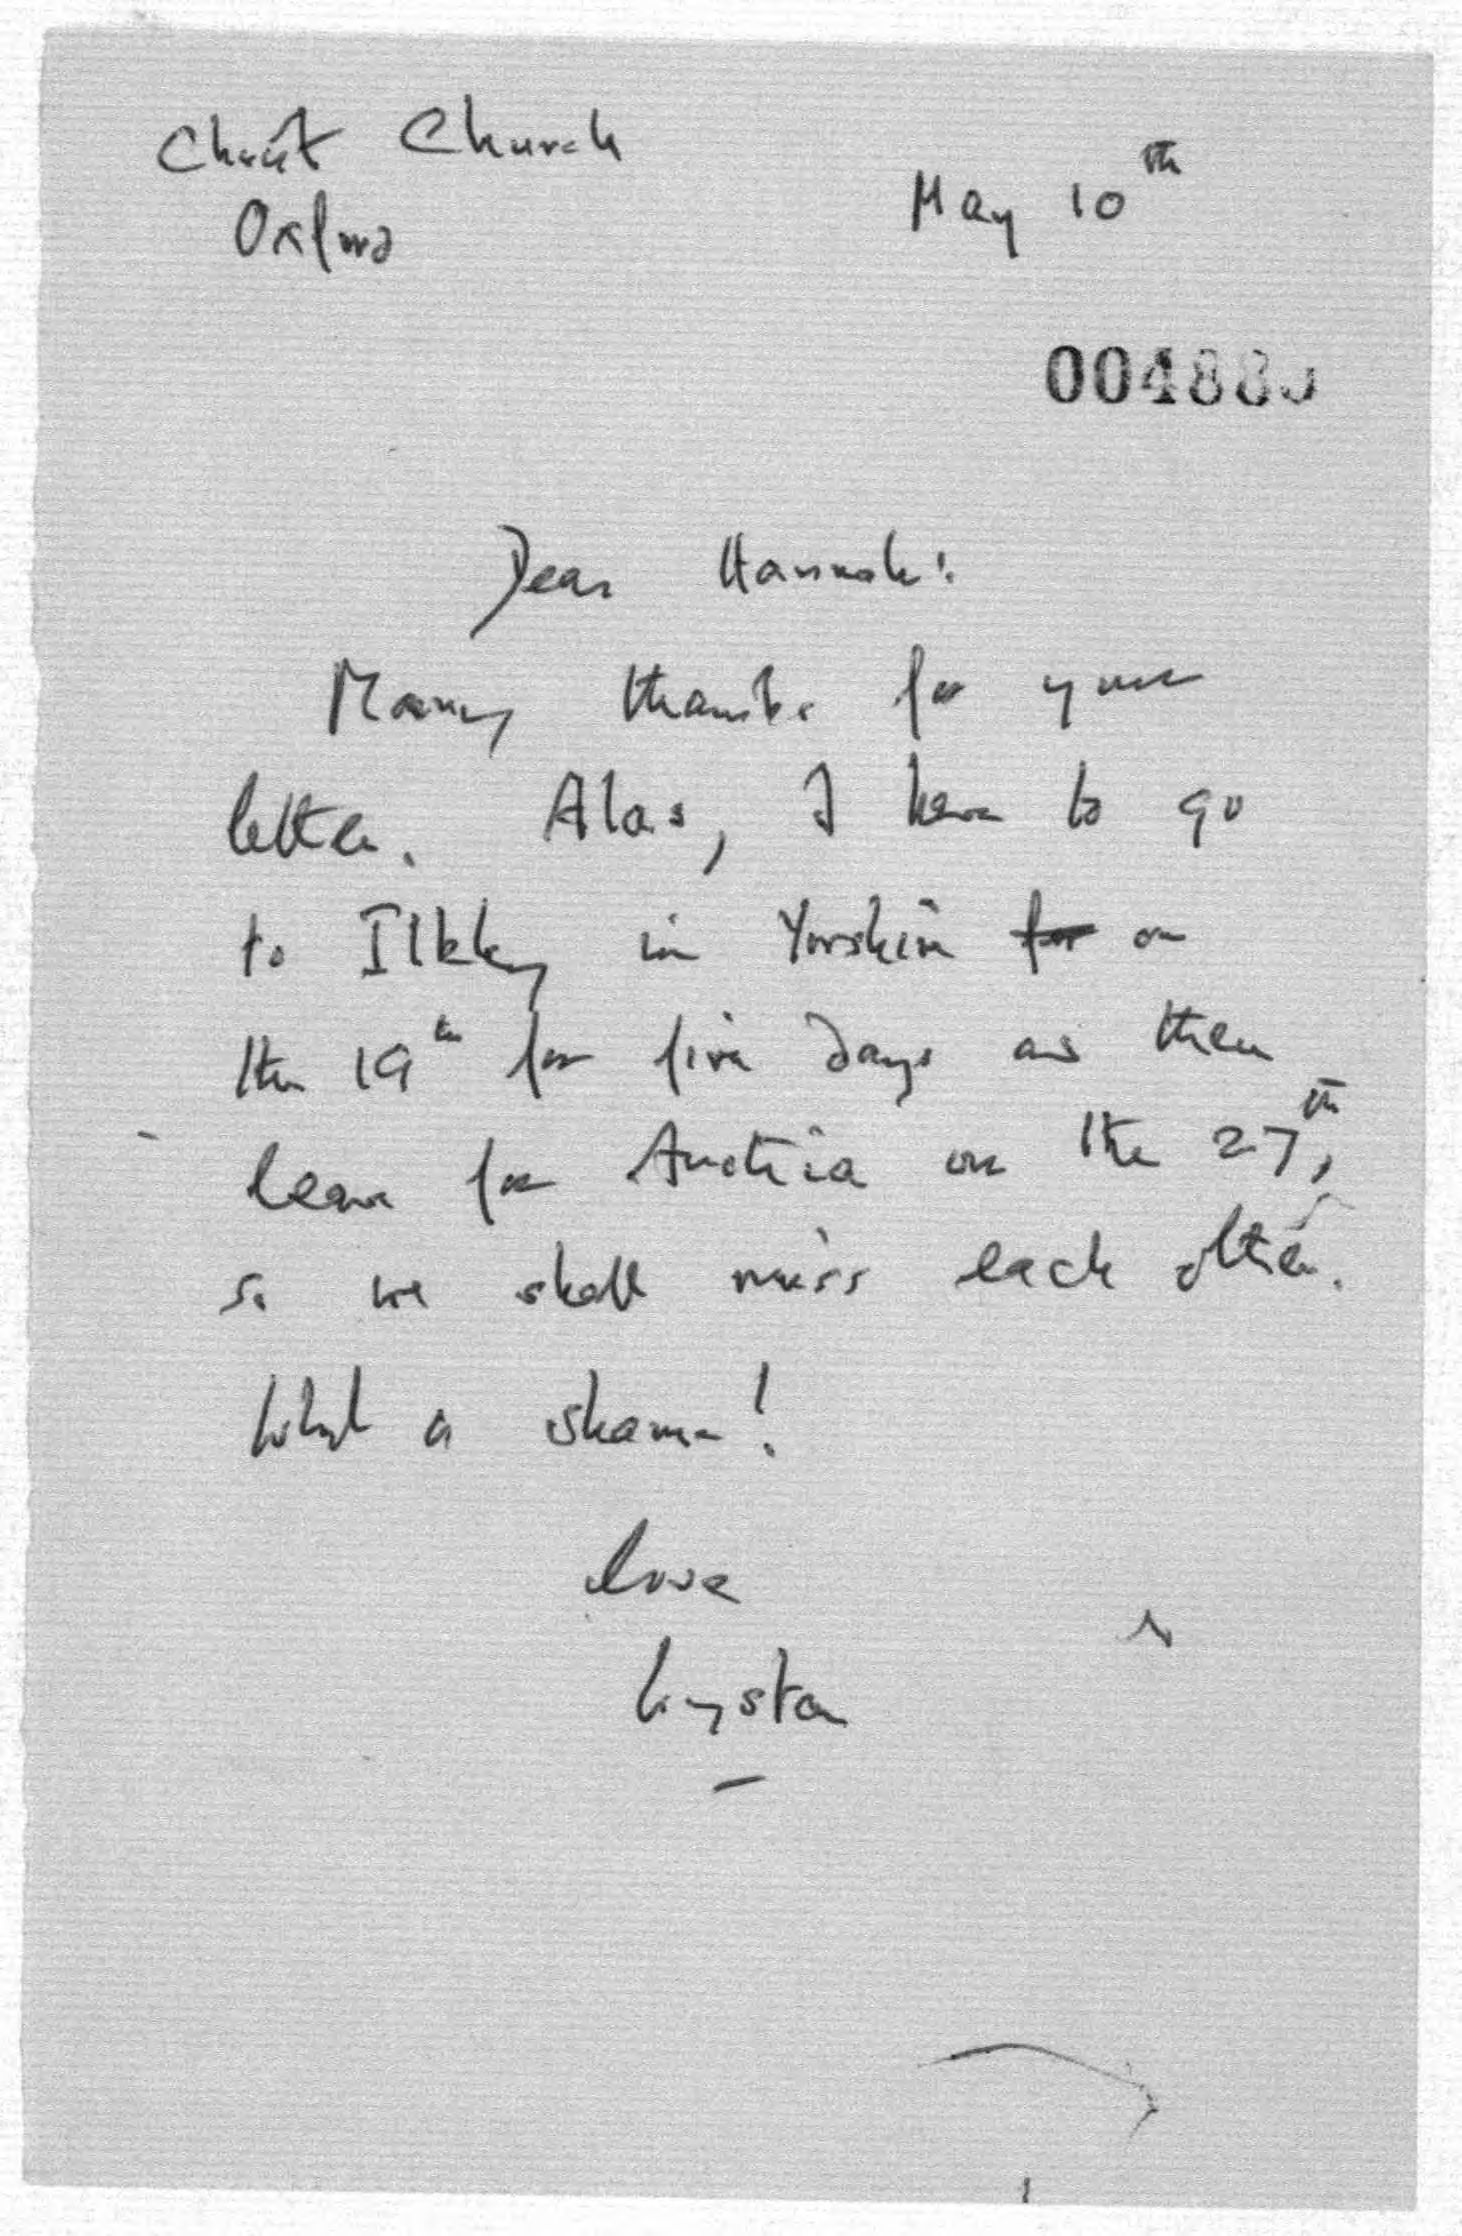 Christ Church
Oxford
May 10th
00488
Dear Hannah:
Many thanks for your
letter. Alas, I have to go
to Ilkley in Yorshire for on
the 19th for five days and then
leave for Austria on the 27th,
so we shall miss each other.
What a shame!
love
Wystan